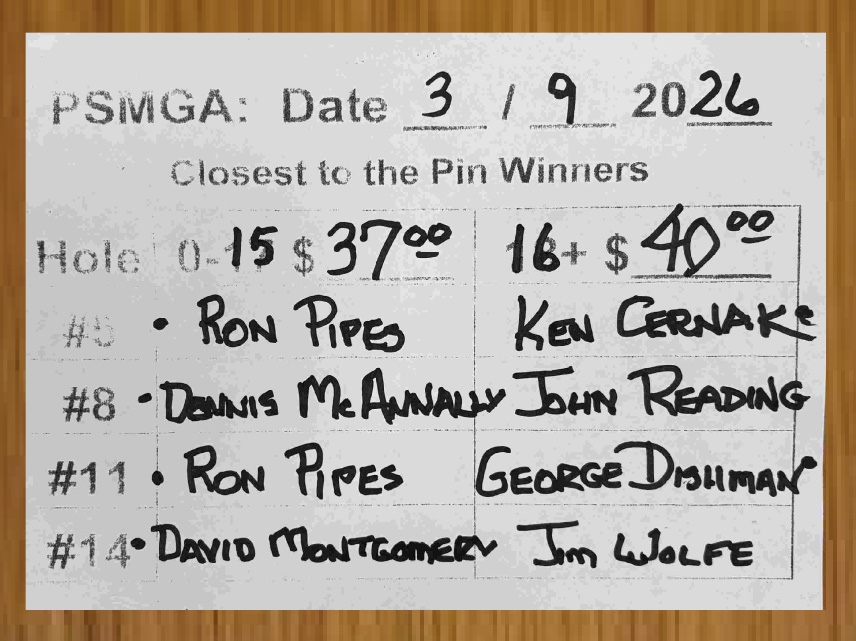 PSMGA: Date 3 / 9 2026
Closest to the Pin Winners
Hole 0-15 $ 37.00 16+ $ 40.00
#5 • RON PIPES KEN CERNAK
#8 • DENNIS McANNALLY JOHN READING
#11 • RON PIPES GEORGE DISHMAN
#14 • DAVID MONTGOMERY Jim WOLFE